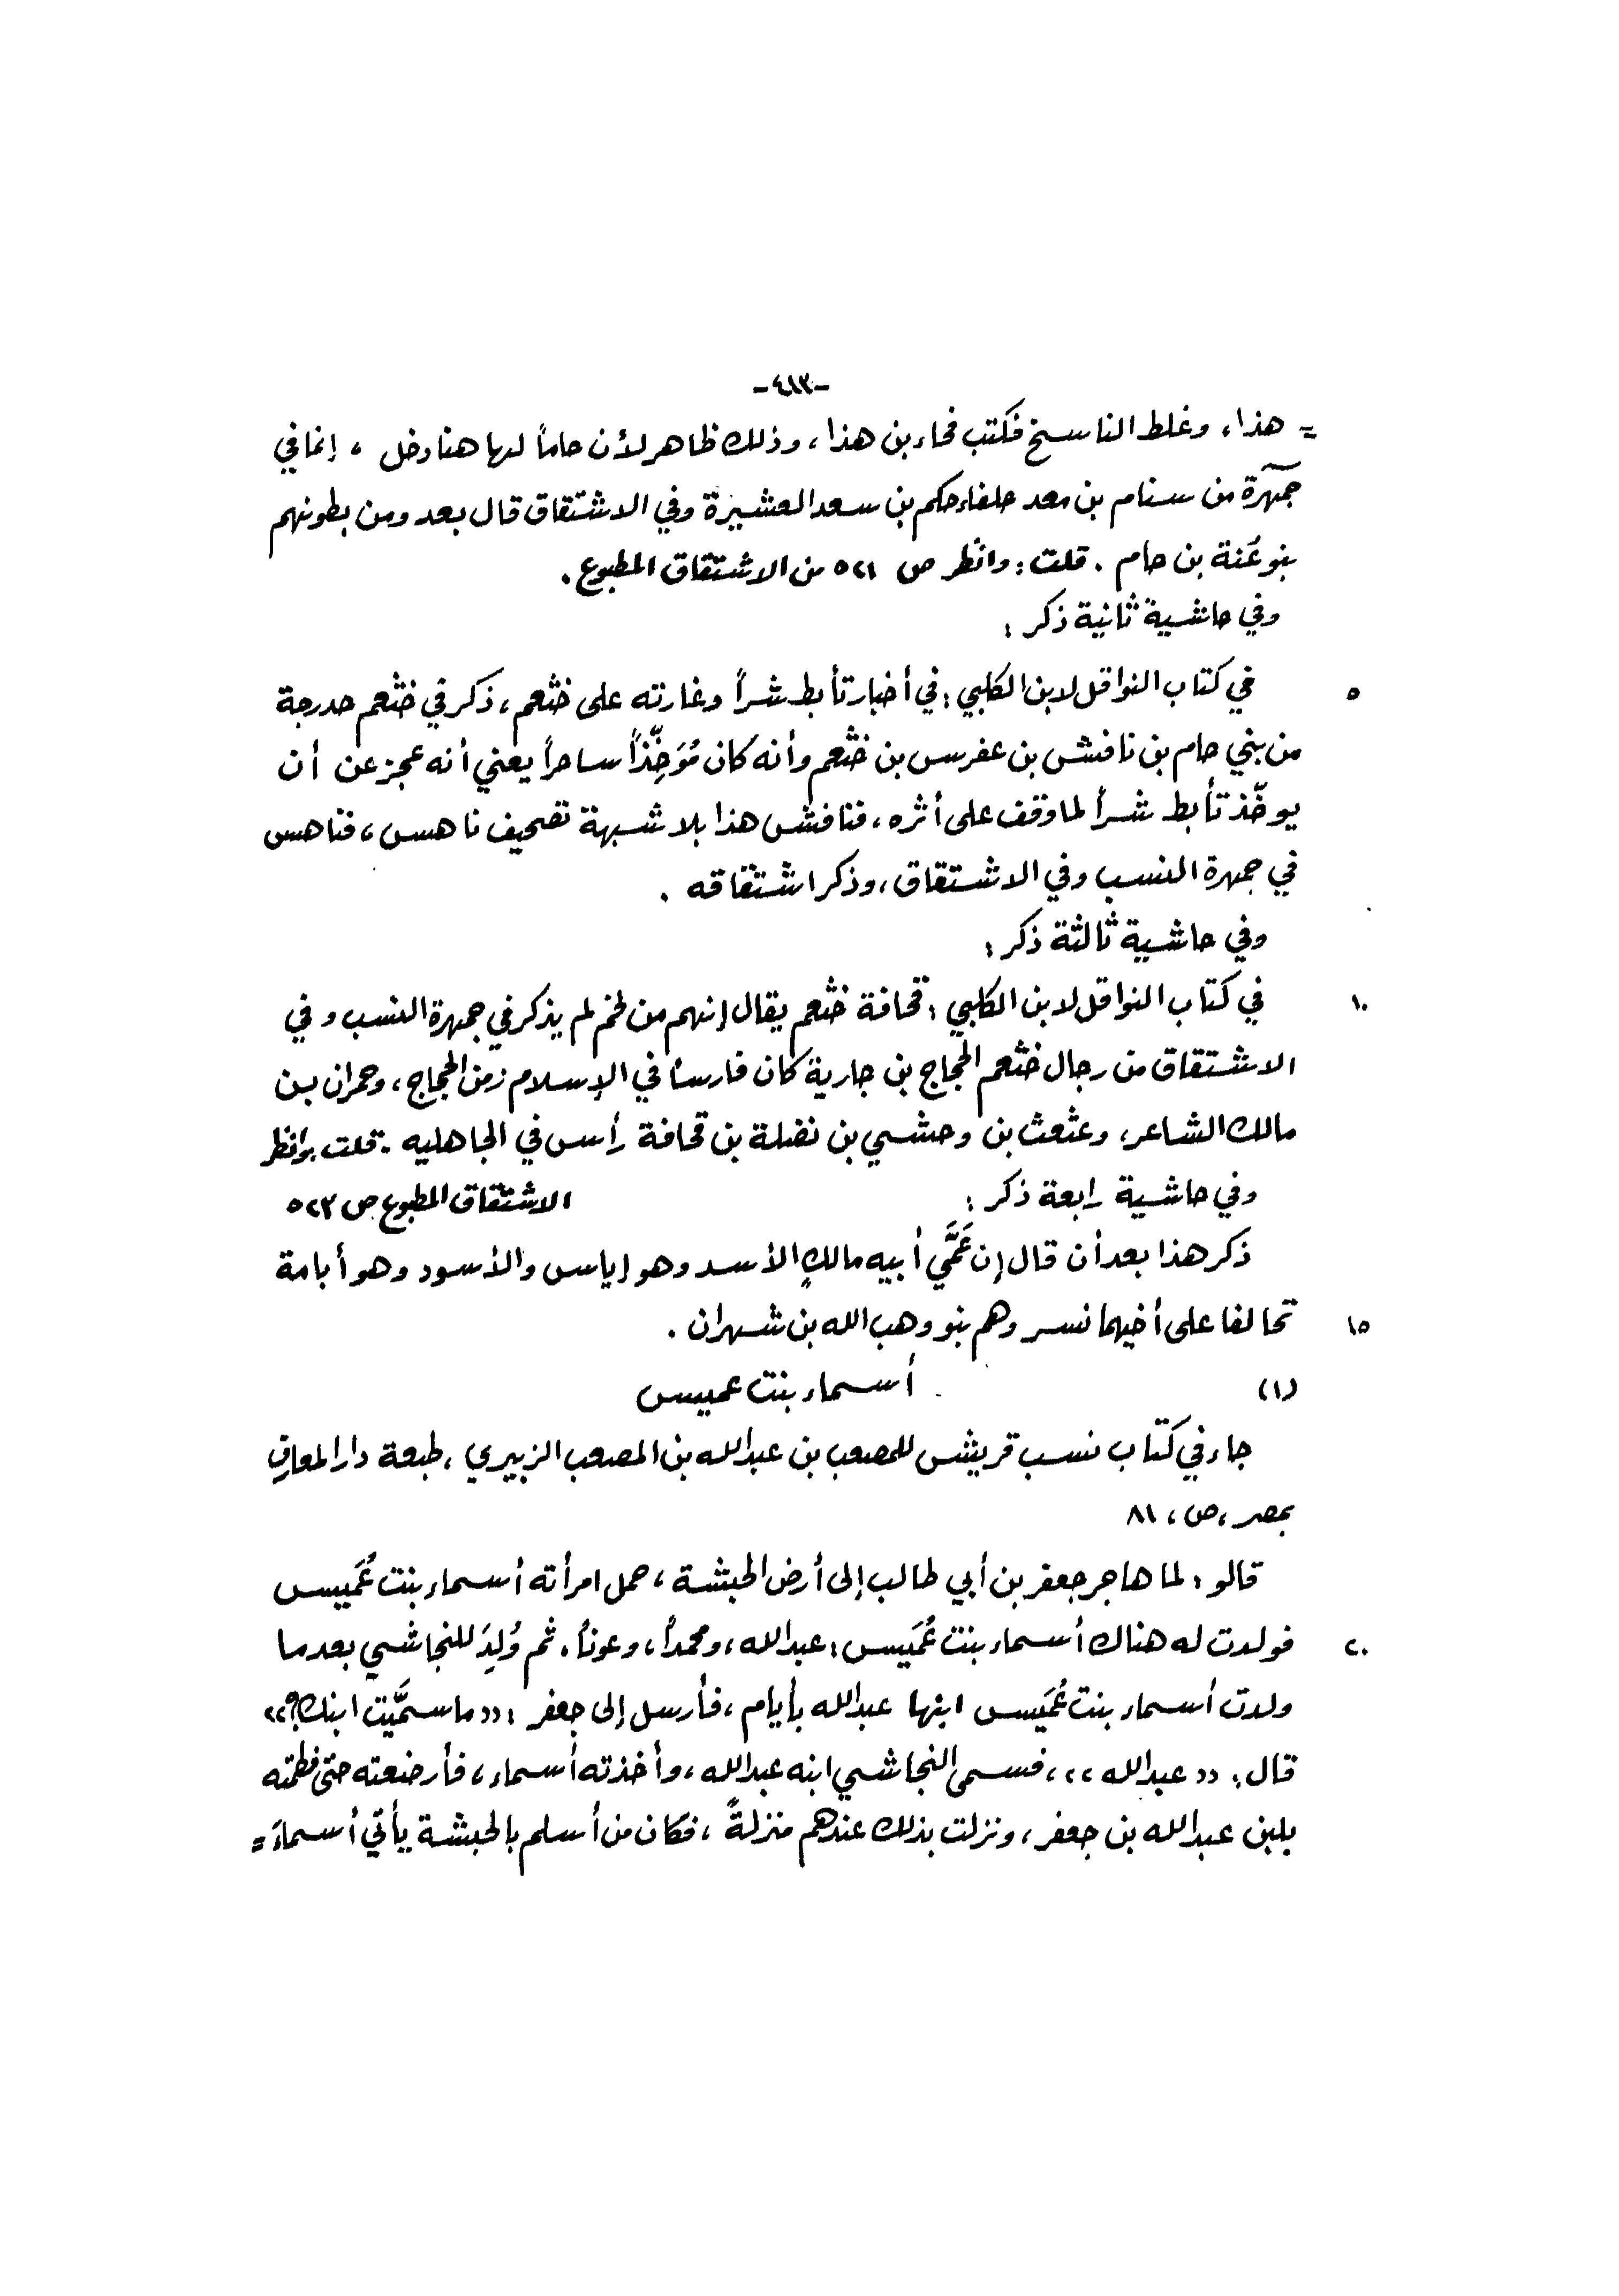 -٤١٣-
= هذا، وغلط الناسخ فكتب فحاء بن هذا، وذلك ظاهر لأن حاماً لها هنا دخل، إنما في
جمهرة من سنام بن معد حلفاء حكم بن سعد العشيرة وفي الاشتقاق قال بعد ومن بطونهم
بنو عَنة بن حام. قلت: وانظر ص ٥٢١ من الاشتقاق المطبوع.
وفي حاشية ثانية ذكر:
٥ في كتاب النواقل لابن الكلبي: في أخبار تأبط شراً وغارته على خثعم، ذكر في خثعم حدرجة
من بني حام بن نافش بن عفرس بن خثعم وأنه كان مُوَخِّذاً ساحراً يعني أنه عجز عن أن
يوخّذ تأبط شراً لما وقف على أثره، فنافش هذا بلا شبهة تصحيف ناهس، فناهس
في جمهرة النسب وفي الاشتقاق، وذكر اشتقاقه.
وفي حاشية ثالثة ذكر:
١٠ في كتاب النواقل لابن الكلبي: قحافة خثعم يقال إنهم من لخم لم يذكر في جمهرة النسب وفي
الاشتقاق من رجال خثعم الحجاج بن جارية كان فارساً في الإسلام زمن الحجاج، وحمران بن
مالك الشاعر، وعثعث بن وحشي بن نضلة بن قحافة رأس في الجاهليه. قلت: وانظر
الاشتقاق المطبوع ص ٥٢٣
وفي حاشية رابعة ذكر:
ذكر هذا بعد أن قال إن عَمَّي أبيه مالكٍ الأسد وهو إياس والأسود وهو أبامة
١٥ تحالفا على أخيهما نسر وهم بنو وهب الله بن شهران.
(١) أسماء بنت عميس
جاء في كتاب نسب قريش للمصعب بن عبدالله بن المصعب الزبيري، طبعة دار المعارف
بمصر، ص، ٨١
قالو: لما هاجر جعفر بن أبي طالب إلى أرض الحبشة، حمل امرأته أسماء بنت عُمَيس
٢٠ فولدت له هناك أسماء بنت عُمَيس: عبدالله، ومحمداً، وعوناً. ثم وُلِدَ للنجاشي بعدما
ولدت أسماء بنت عُمَيس ابنها عبدالله بأيام، فأرسل إلى جعفر: «ما سمَّيت ابنك؟»
قال: «عبدالله»، فسمى النجاشي ابنه عبدالله، وأخذته أسماء، فأرضعته حتى فطمته
بلبن عبدالله بن جعفر، ونزلت بذلك عندهم منزلةً، فكان من أسلم بالحبشة يأتي أسماءَ =